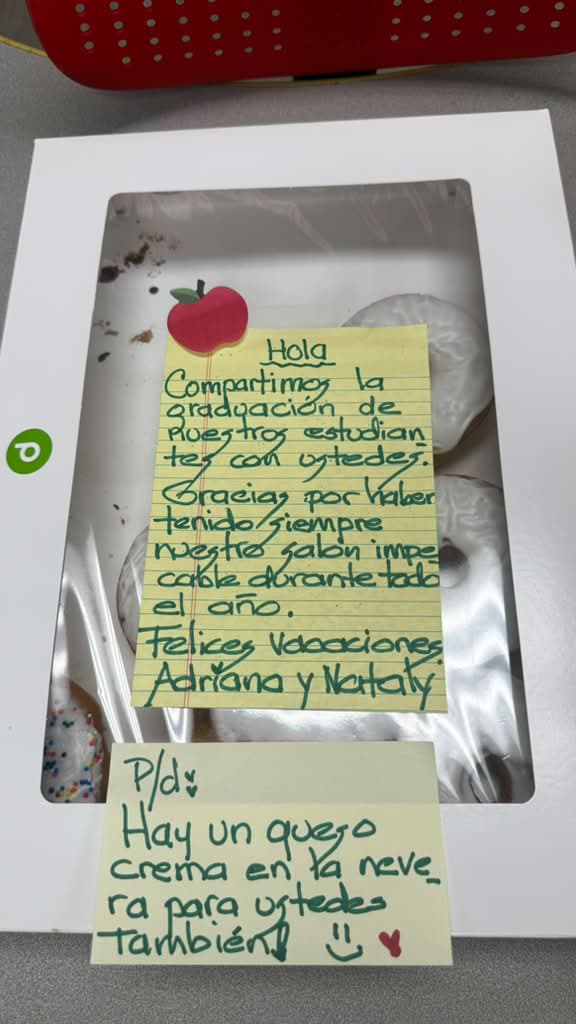 Hola
Compartimos la
graduación de
nuestros estudian_
tes con ustedes.
Gracias por haber
tenido siempre
nuestro salón impe_
cable durante todo
el año.
Felices vacaciones
Adriana y Nataly
P/d:
Hay un queso
crema en la neve_
ra para ustedes
también!